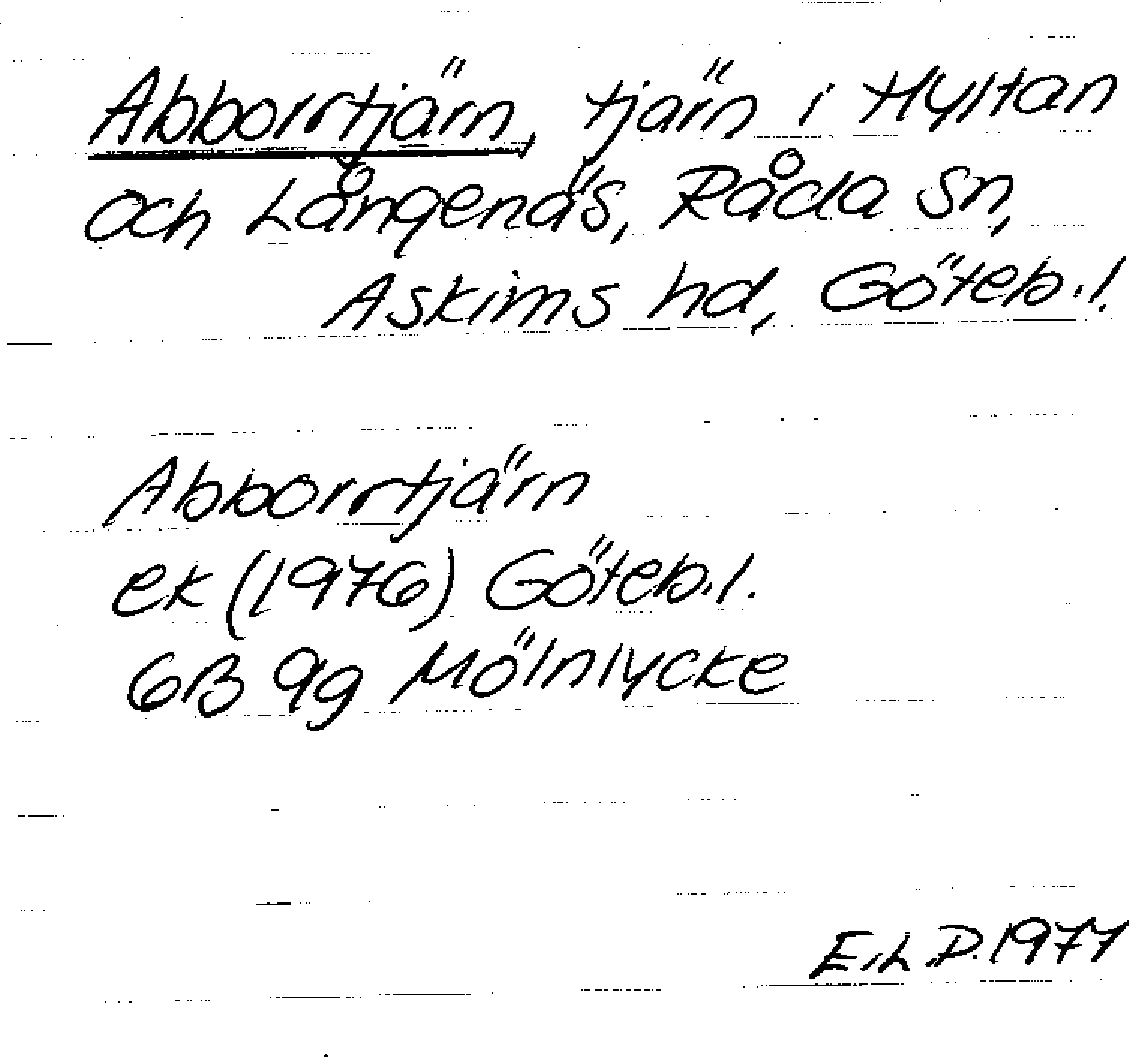 Abborrtjärn, tjärn i Hyltan
och Långenäs, Råda sn,
Askims hd, Göteb.l.
Abborrtjärn
ek (1976) Göteb.l.
6B 9g Mölnlycke
E.L.D. 1977